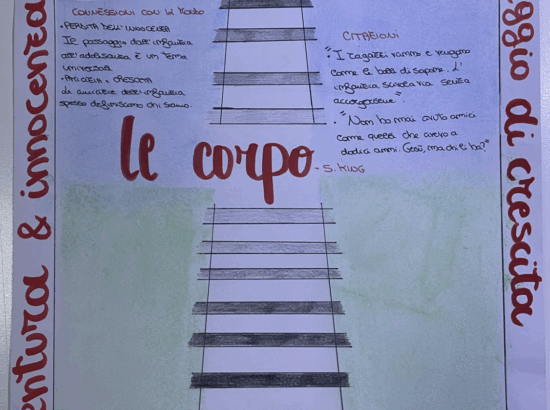 CONNESSIONI CON IL MONDO
• PERDITA DELL'INNOCENZA
Il passaggio dall'infanzia
all'adolescenza è un tema
universale.
• AMICIZIA e CRESCITA
Le amicizie dell'infanzia
spesso definiscono chi siamo.
CITAZIONI
• "I ragazzi vanno e vengono
come le bolle di sapone. L'
infanzia scivola via senza
accorgersene".
• "Non ho mai avuto amici
come quelli che avevo a
dodici anni. Gesù, ma chi li ha?"
- S. KING
le corpo
entura & innocenza
ggio di crescita